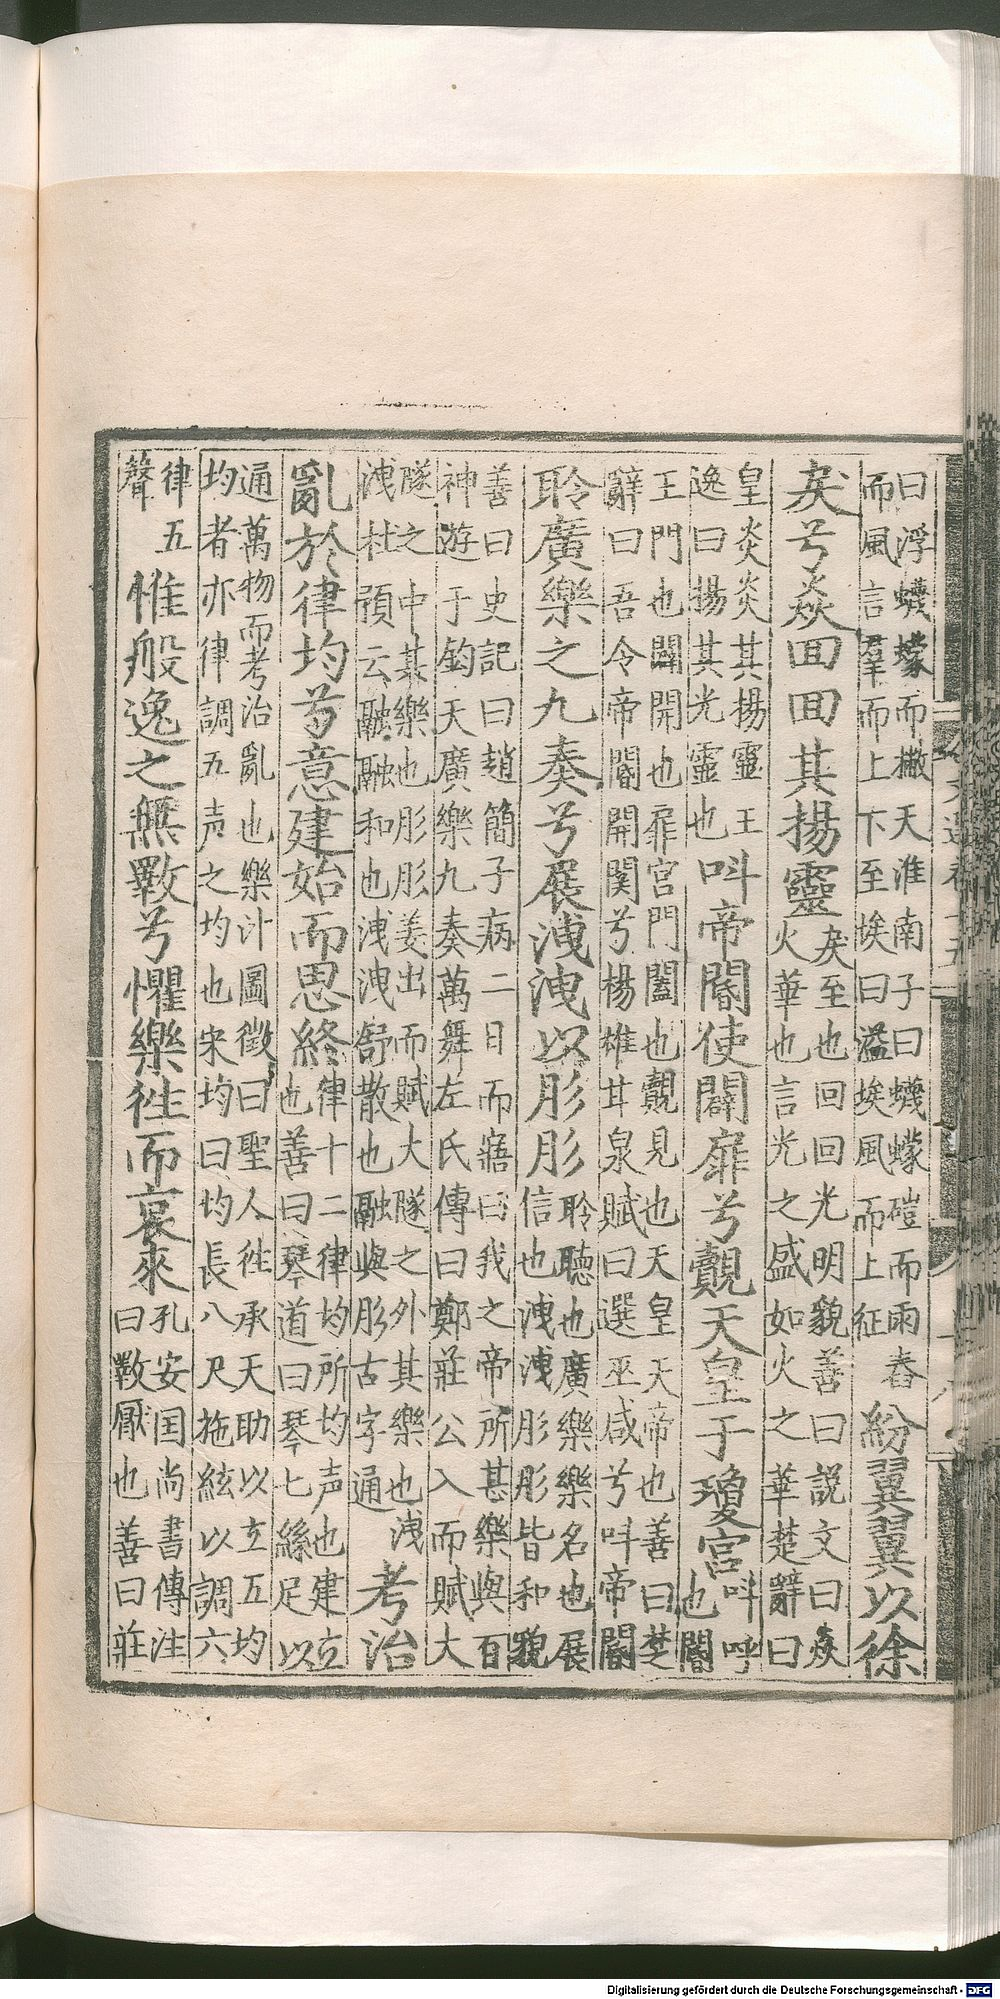 曰浮蠛蠓而撇天淮南子曰蠛蠓磑而雨舂
而風言羣而上下至埃曰溢埃風而上征
紛翼翼以徐
戾兮焱回回其揚靈
戾至也回回光明貌善曰說文曰焱
火華也言光之盛如火之華楚辭曰
皇炎炎其揚靈王
逸曰揚其光靈也
叫帝閽使闢扉兮覿天皇于瓊宮
叫呼
也閽
王門也闢開也扉宮門闔也覿見也天皇天帝也善曰楚
辭曰吾令帝閽開関兮楊雄甘泉賦曰選巫咸兮叫帝閽
聆廣樂之九奏兮展洩洩以肜肜
聆聽也廣樂樂名也展
信也洩洩肜肜皆和貌
善曰史記曰趙簡子病二日而寤曰我之帝所甚樂與百
神游于鈞天廣樂九奏萬舞左氏傳曰鄭莊公入而賦大
隧之中其樂也肜肜姜出而賦大隧之外其樂也洩
洩杜預云融融和也洩洩舒散也融與肜古字通
考治
亂於律均兮意建始而思終
律十二律均所均声也建立
也善曰琴道曰琴七絲足以
通萬物而考治亂也樂汁圖徵曰聖人徃承天助以立五均
均者亦律調五声之均也宋均曰均長八尺施絃以調六
律五
聲
惟般逸之無斁兮懼樂徃而哀來
孔安囯尚書傳注
曰斁厭也善曰莊
Digitalisierung gefördert durch die Deutsche Forschungsgemeinschaft - DFG